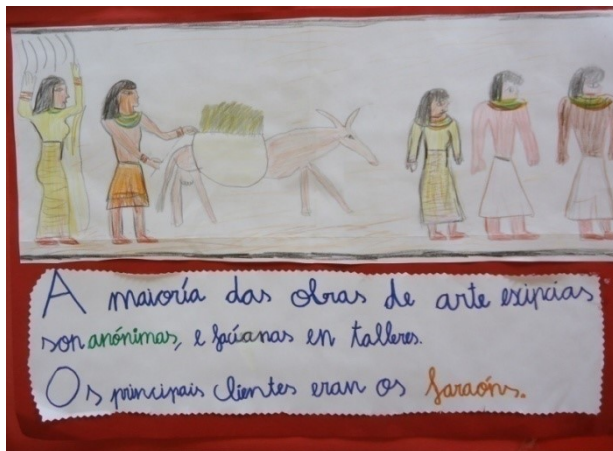 A maioría das obras de arte exipcias
son anónimas, e facíanas en talleres.
Os principais clientes eran os faraóns.